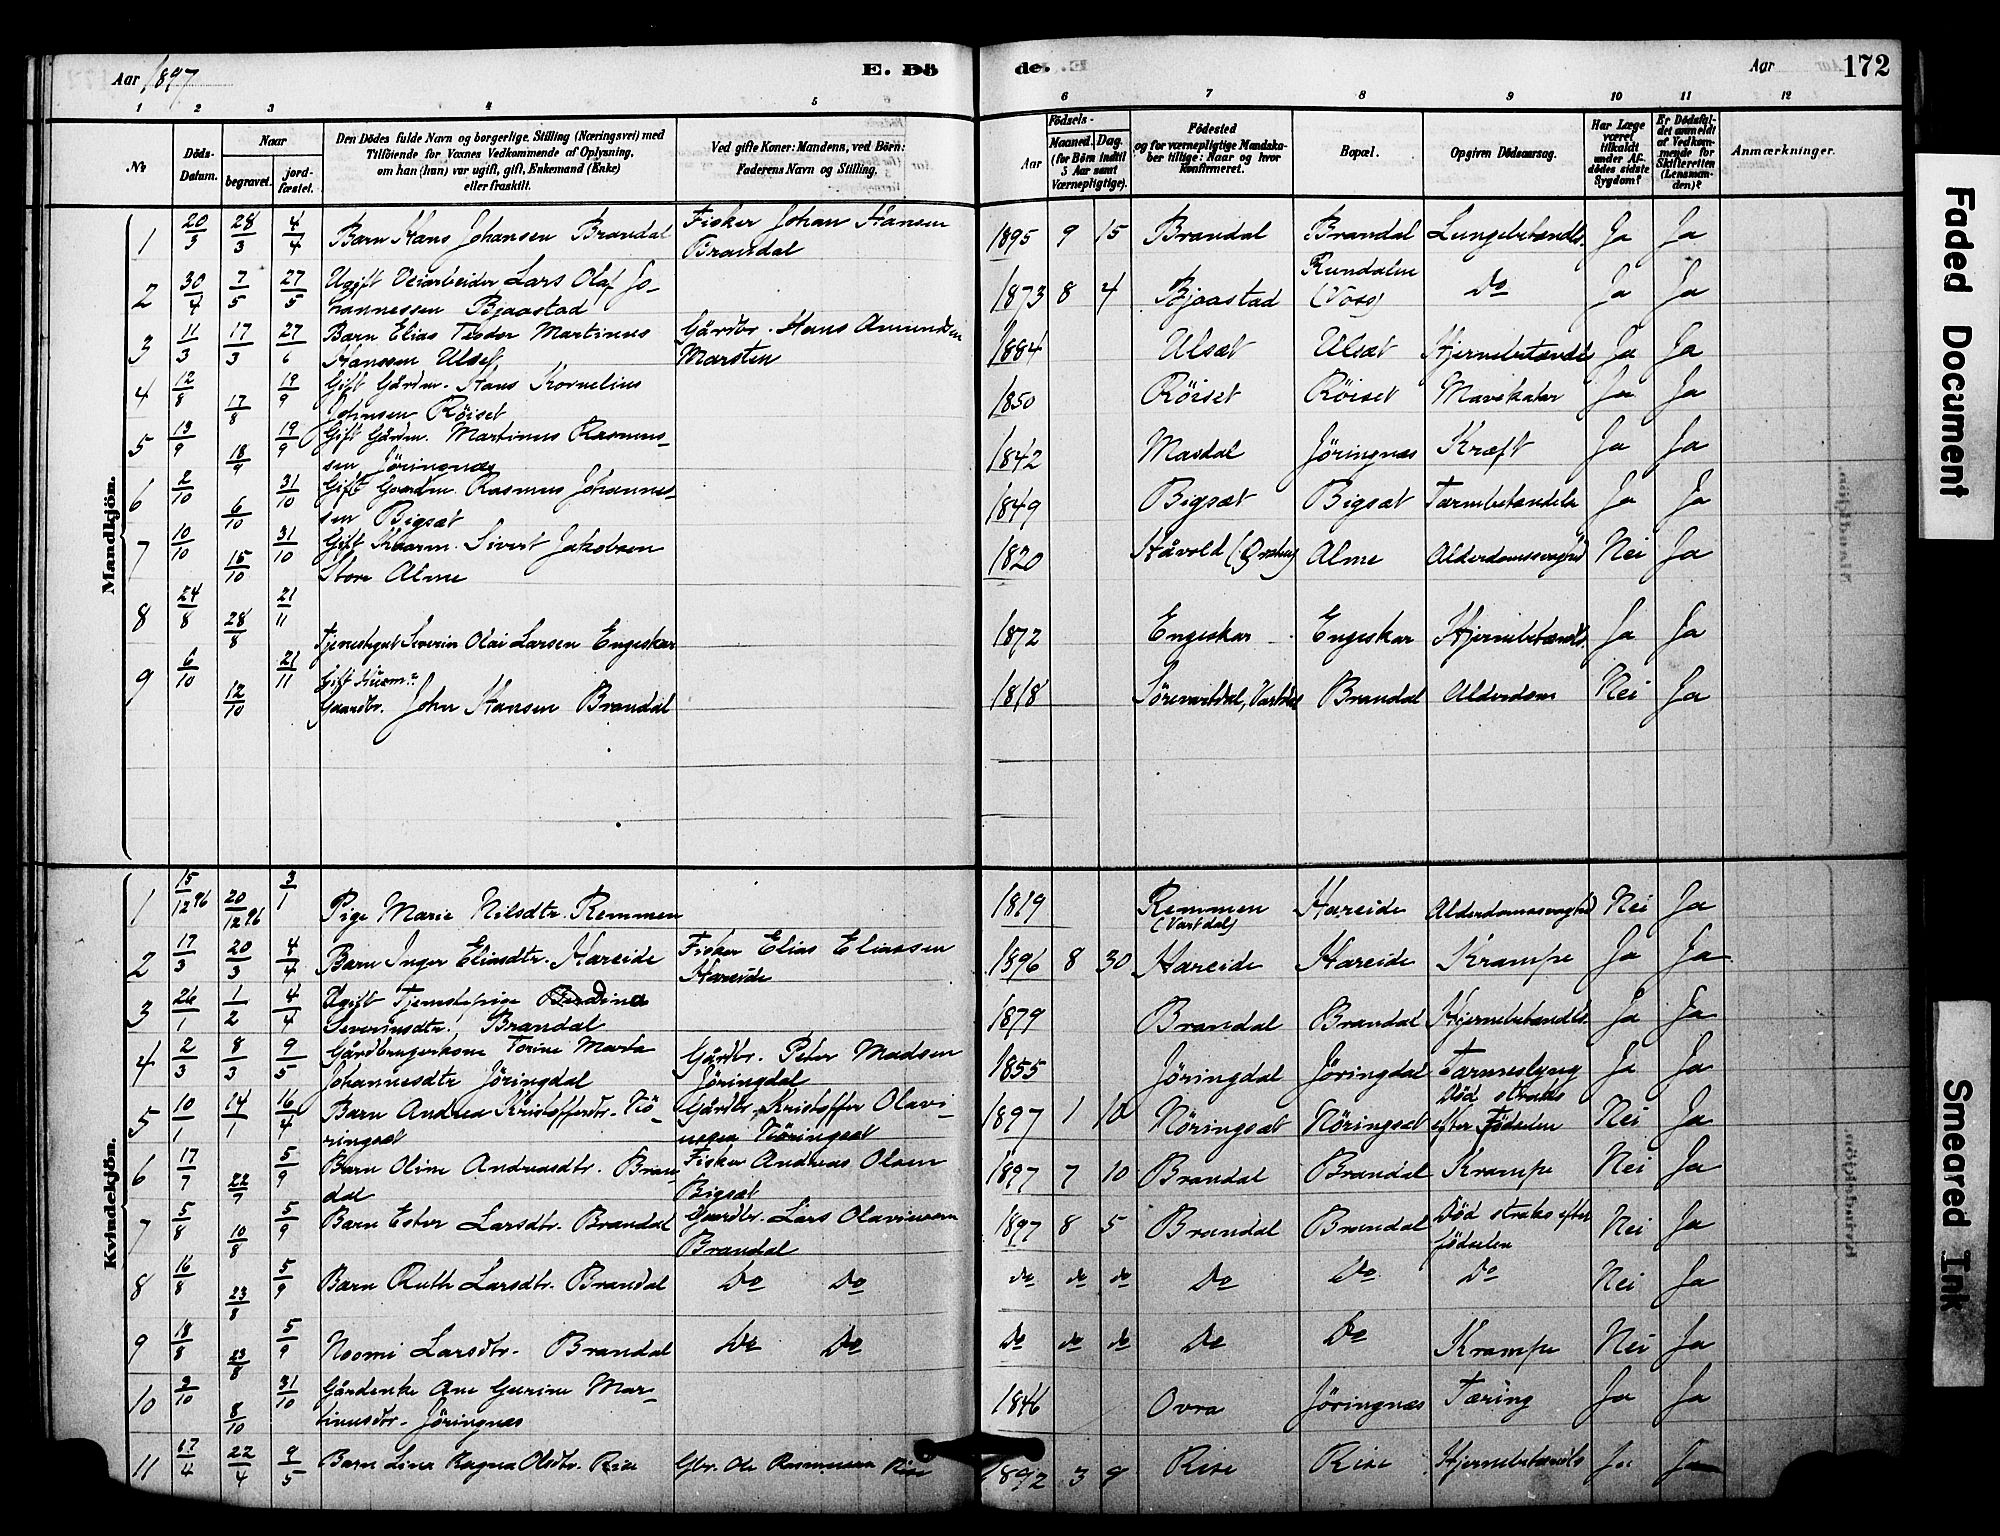 Aar 1897 E. Dö de. Aar 172
1 2 3 4 5 6 7 8 9 10 11 12
No
Döds-Datum.
Naar
begravet.
jord-fæstet.
Den Dödes fulde Navn og borgerlige Stilling (Næringsvei) med
Tilföiende for Voxnes Vedkommende af Oplysning,
om han (hun) var ugift, gift, Enkemand (Enke)
eller fraskilt.
Ved gifte Koner: Mandens, ved Börn:
Faderens Navn og Stilling.
Födsels-
Aar
Maaned. Dag.
(for Börn indtil
5 Aar samt
Værnepligtige).
Födested
og for værnepligtige Mandska-
ber tillige: Naar og hvor
konfirmeret.
Bopæl.
Opgiven Dödsaarsag.
Har Læge
været
tilkaldt
under Af-
dödes sidste
Sygdom?
Er Dödsfal-
det anmeldt
af Vedkom-
mende for
Skifteretten
(Lensman-
den)?
Anmærkninger.
Mandkjön.
1 20/3 28/3 4/4 Barn Hans Johansen Brandal Fisker Johan Hansen Brandal 1895 9 15 Brandal Brandal Lungebetændls. Ja Ja
2 30/4 7/5 27/5 Ugift Veiarbeider Lars Olaf Jo-
hannessen Bjaastad 1873 8 4 Bjaastad Rundalen (Voss) Do Ja Ja
3 11/3 17/3 27/6 Barn Elias Teodor Martinus
Hanssen Ulset Gårdbr. Hans Amundsen Marsten 1884 Ulsæt Ulsæt Hjernebetændls Ja Ja
4 12/8 17/8 19/9 Gift Gårdm. Hans Kornelius
Johnsen Röiset 1850 Röiset Röiset Mavekatar Ja Ja
5 13/9 18/9 19/9 Gift Gårdm. Martinus Rasmus-
sen Jöringnæs 1842 Masdal Jöringnæs Kræft Ja Ja
6 2/10 6/10 31/10 Gift Gaardm. Rasmus Johannes-
sen Bigsæt 1849 Bigsæt Bigsæt Tarmbetændelse Ja Ja
7 10/10 15/10 31/10 Gift Kaarm. Sivert Jakobsen
Store Alme 1820 Håvold (Örsten) Alme Alderdomssvaghed Nei Ja
8 24/8 28/8 21/11 Tjenestegut Severin Olai Larsen Engeskar 1872 Engeskar Engeskar Hjernebetændls. Ja Ja
9 6/10 12/10 21/11 Gift
Gaardbr. John Hansen Brandal 1818 Sörevartdal, Vartdal Brandal Alderdom Nei Ja
Kvindekjön.
1 15/12 96 20/12 96 3/1 Pige Marie Nilsdtr. Remmen 1819 Remmen (Vartdal) Hareide Alderdomssvaghed Nei Ja
2 17/3 20/3 4/4 Barn Inger Eliasdtr. Hareide Fisker Elias Eliassen Hareide 1896 8 30 Hareide Hareide Krampe Ja Ja
3 26/1 1/2 4/4 Ugift Tjenestepige Berdina
Severinsdtr. Brandal 1879 Brandal Brandal Hjernebetændls. Ja Ja
4 2/3 8/3 9/5 Gårdbrugerkone Torine Marta
Johannesdtr Jöringdal Gårdbr. Peter Madsen Jöringdal 1855 Jöringdal Jöringdal Tarmeslyng Ja Ja
5 10/1 14/1 16/4 Barn Andrea Kristofferdtr. Nö-
ringsæt Gårdbr. Kristoffer Olavi-
ussen Nöringsæt 1897 1 10 Nöringsæt Nöringsæt Död straks efter Födselen Nei Ja
6 17/7 22/7 5/9 Barn Oline Andreasdtr. Bran-
dal Fisker Andreas Olsen Bigsæt 1897 7 10 Brandal Brandal Krampe Nei Ja
7 5/8 10/8 5/9 Barn Ester Larsdtr. Brandal Gaardbr. Lars Olaviussen Brandal 1897 8 5 Brandal Brandal Död straks efter födselen Nei Ja
8 16/8 23/8 5/9 Barn Ruth Larsdtr. Brandal Do Do do do do Do Do Do Nei Ja
9 18/8 23/8 5/9 Noomi Larsdtr. Brandal Do Do Do do do Do Do Krampe Nei Ja
10 2/10 8/10 31/10 Gårdenke Ane Gurine Mar-
tinusdtr. Jöringnæs 1846 Ovra Jöringnæs Tæring Ja Ja
11 17/4 22/4 9/5 Barn Lina Ragna Olsdtr. Rise Gbr. Ole Rasmussen Rise 1892 3 9 Rise Rise Hjernebetændls Ja Ja
Faded Document
Smeared Ink